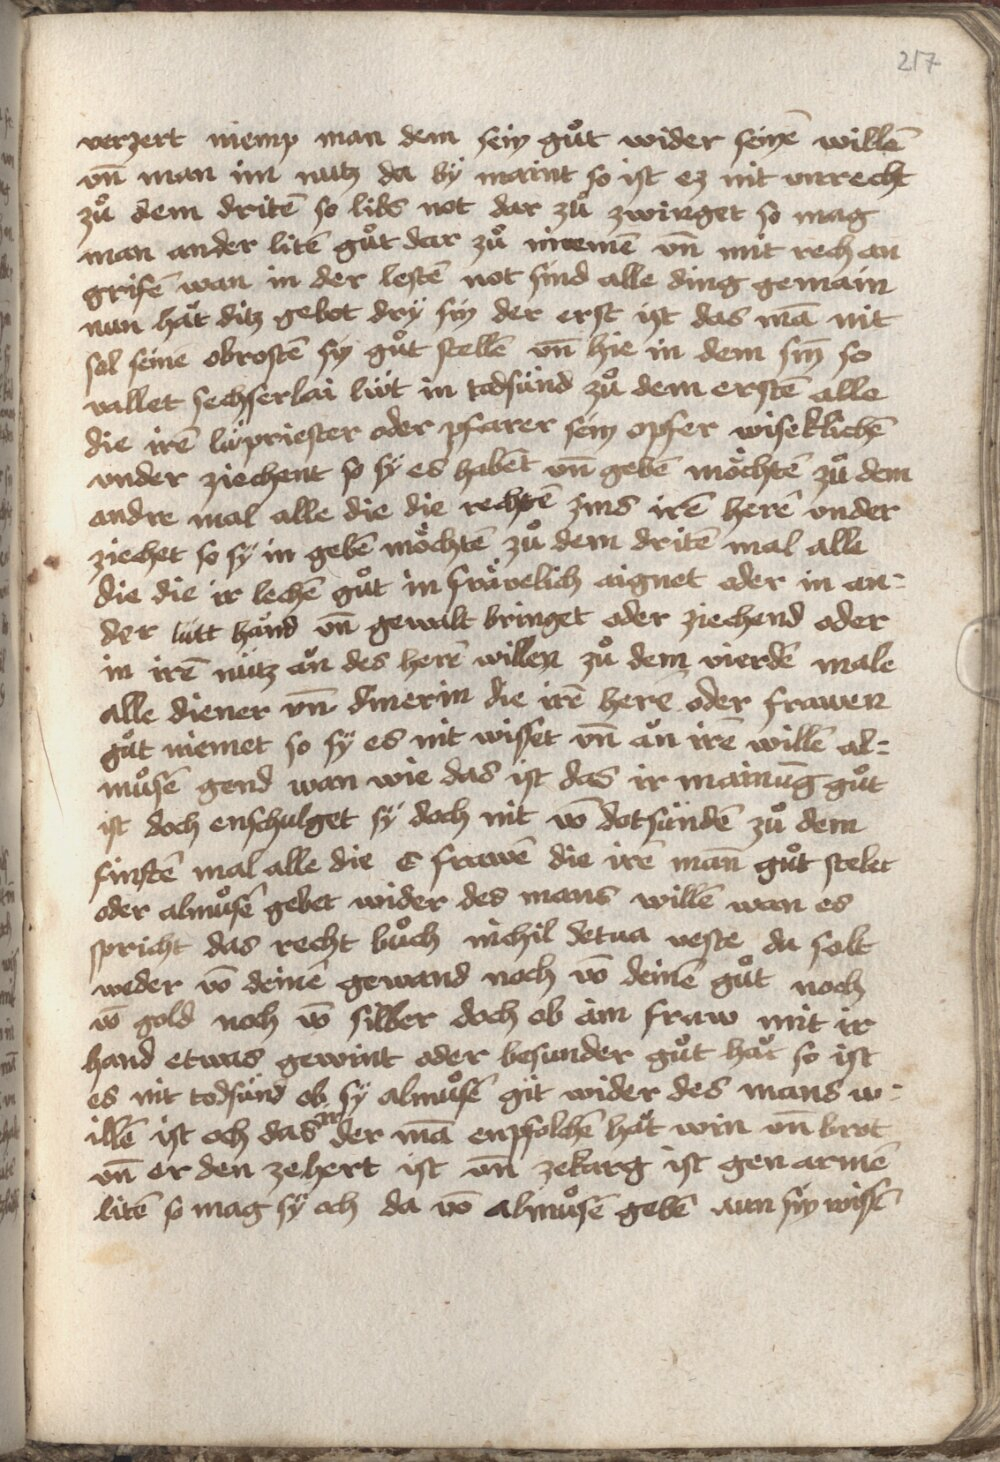 217
verzert niemp man dem sein gůt wider seinē willē
vn̄ man im nutz da bÿ maint so ist ez nit vnrecht
zů dem dritē so libs not dar zů zwinget so mag
man ander litē gůt dar zů niemē vn̄ mit rech an
grifē wan in der lestē not sind alle ding gemain
nun hăt ditz gebot drÿ sin der erst ist das mā nit
sol seinē obrostē sin gůt stellē vn̄ hie in dem sin̄ so
vallet sechserlai lüt in todsünd zů dem erstē alle
die irē lüpriester oder pfarer sein opfer wiseklichē
vnder ziechent so sÿ es habēt vn̄ gebē möchtē zů dem
andre mal alle die die rechtē zins irē herē vnder
ziechet so sÿ in gebē möchtē zů dem dritē mal alle
die die ir lechē gůt in frävelich aignet oder in an=
der lütt hănd vn̄ gewalt bringet oder ziechend oder
in irē nütz ăn des herē willen zů dem vierdē male
alle diener vn̄ dinerin die irē herē oder frawen
gůt niemet so sÿ es nit wisset vn̄ ăn irē willē al=
můsē gend wan wie das ist das ir mainūg gůt
ist doch enschulget sÿ doch nit vō dotsündē zů dem
finftē mal alle die E frawē die irē man̄ gůt stelet
oder almůsē gebet wider des mans willē wan es
spricht das recht bůch nichil detua veste du solt
weder vō deinē gewand noch vō deinē gůt noch
vō gold noch vō silber doch ob ain fraw mit ir
hand etwas gewint oder besunder gůt hăt so ist
es nit todsünd ob sÿ almůsē git wider des mans w=
illē ist och das ir der mā enpfolchē hăt win vn̄ brot
vn̄ er den zehert ist vn̄ zekarg ist gen armē
litē so mag sÿ och da vō almůsē gebē aun sin wissē